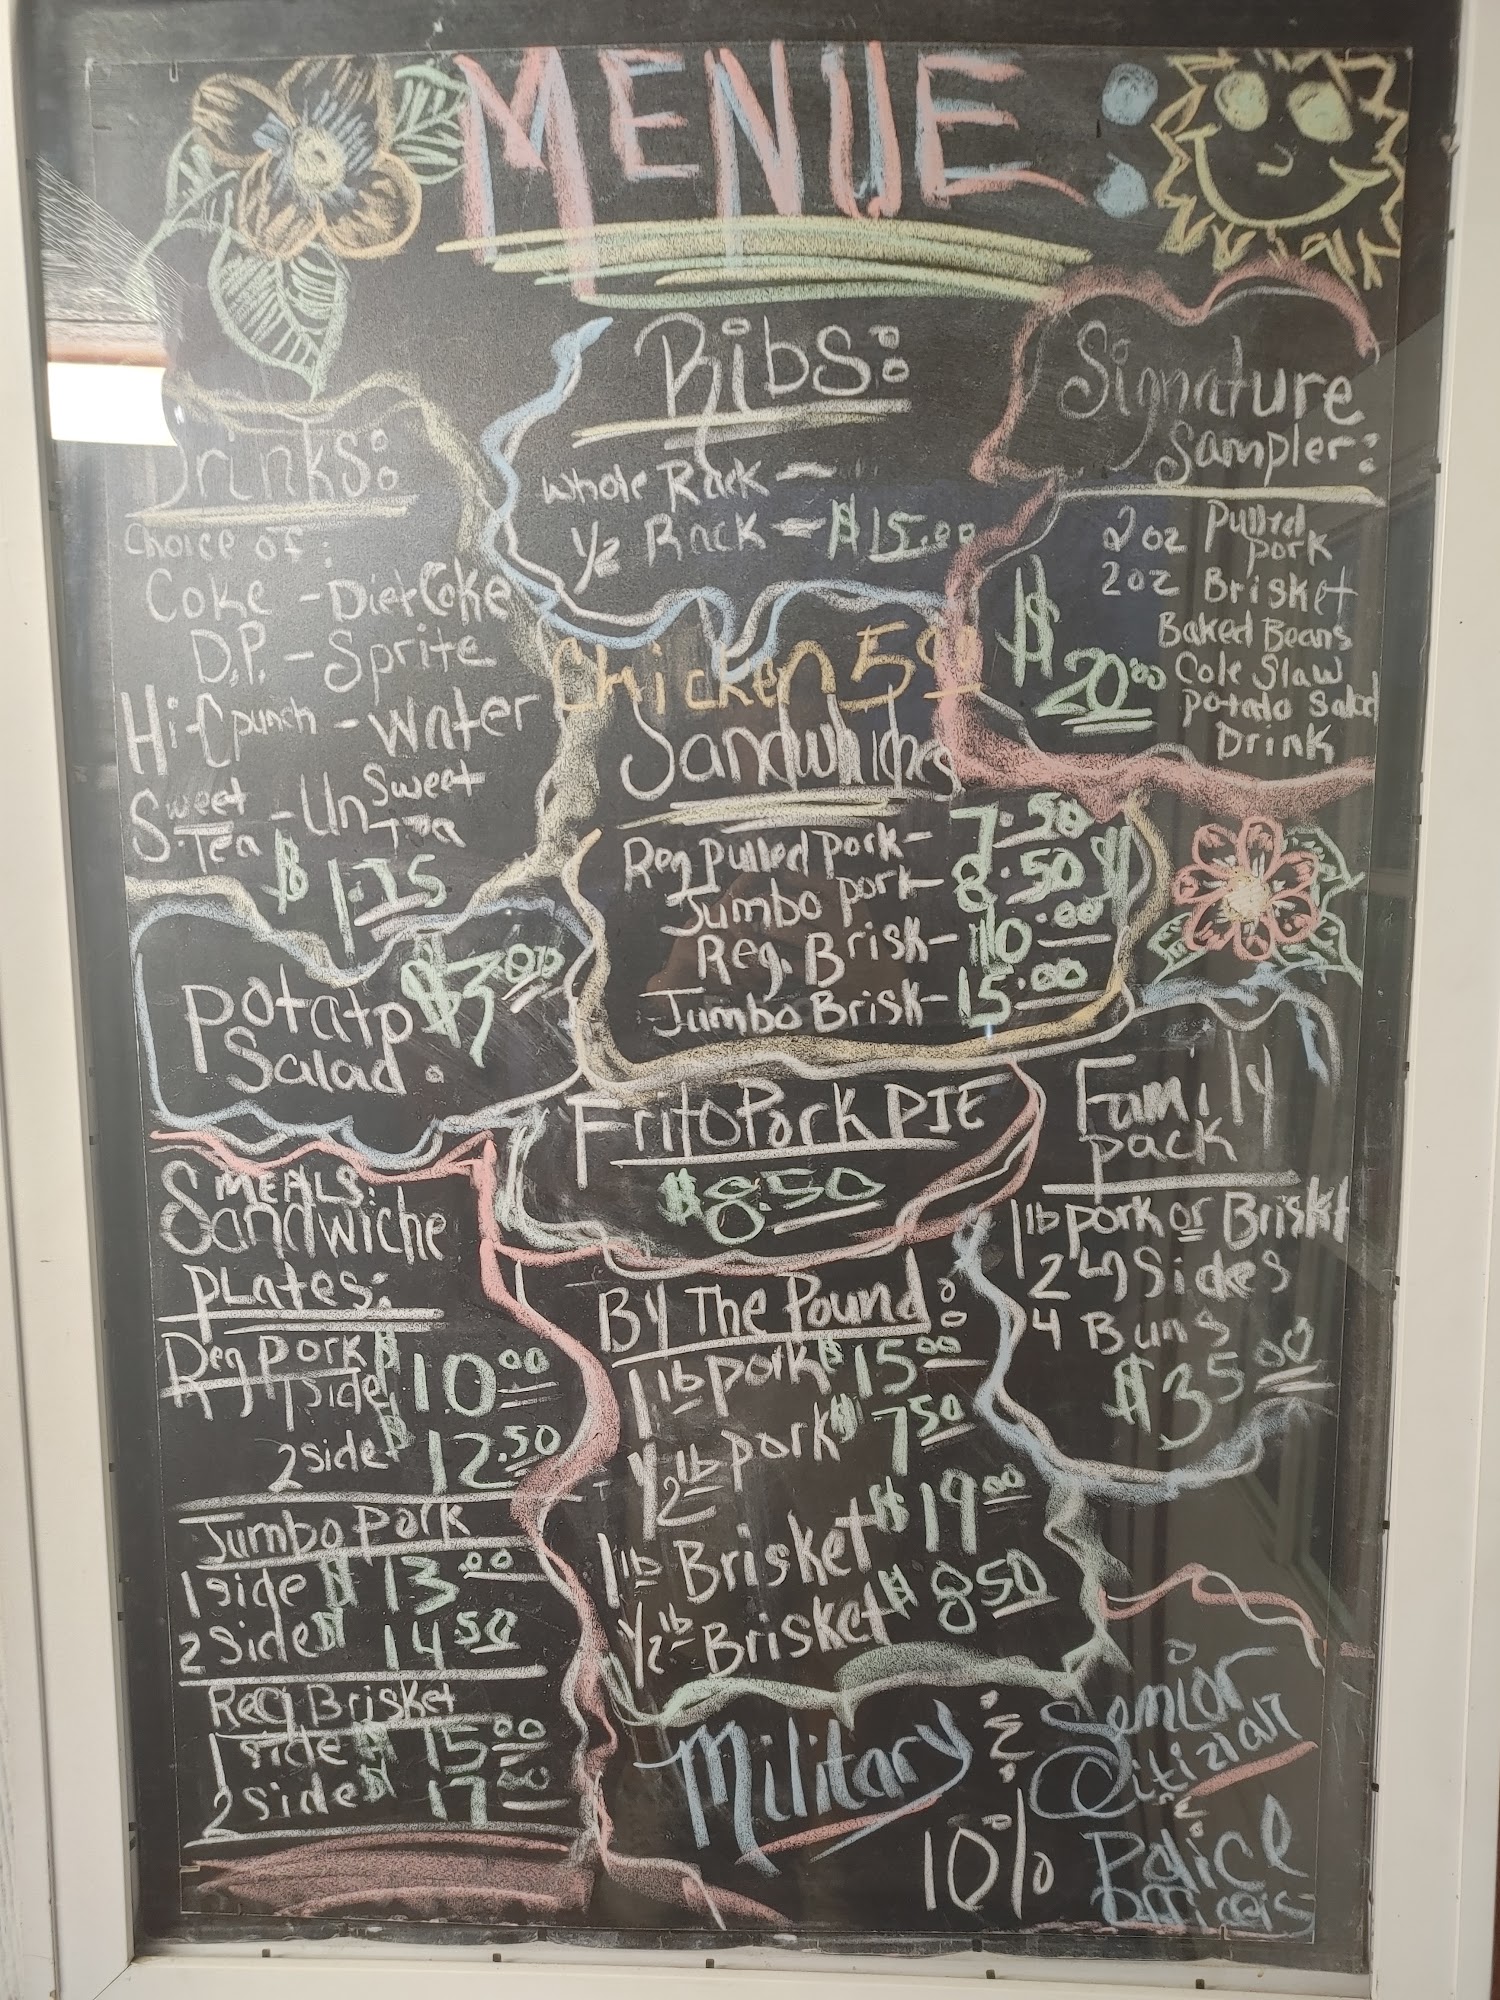 MENUE:
Drinks:
Choice of:
Coke - Diet Coke
D.P. - Sprite
Hi-C punch - Water
Sweet Tea - Un Sweet Tea
$1.75
Potato Salad. $3.00
MEALS:
Sandwiche
PLATES:
Reg Pork $10.00
1 side
2 side $12.50
Jumbo Pork
1 side $13.00
2 side $14.50
Reg Brisket
1 side $15.00
2 side $17.00
Ribs:
Whole Rack -
1/2 Rack - $15.00
Chicken 5.00
Sandwiches
Reg Pulled Pork - 7.50
Jumbo pork - 8.50
Reg. Brisk - 10.00
Jumbo Brisk - 15.00
Frito Pork PIE
$8.50
By The Pound:
1 lb pork $15.00
1/2 lb pork $7.50
1 lb Brisket $19.00
1/2 lb Brisket $8.50
Signature
Sampler:
2oz Pulled pork
2oz Brisket
Baked Beans
Cole Slaw
Potato Salad
Drink
$20.00
Family
pack
1 lb pork or Briskt
2 Sides
4 Buns
$35.00
Military & Senior
Citizian
&
10% Police
Officers